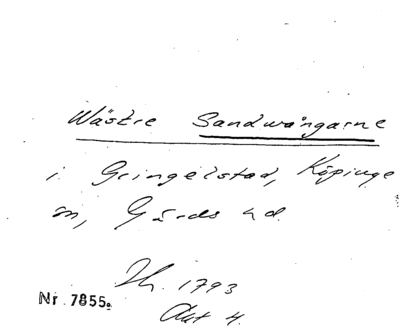 Wästre Sandwångarne
i Gringelstad, Köpinge
sn, Gärds hd.
Lh. 1793
Akt 4.
Nr 7855.